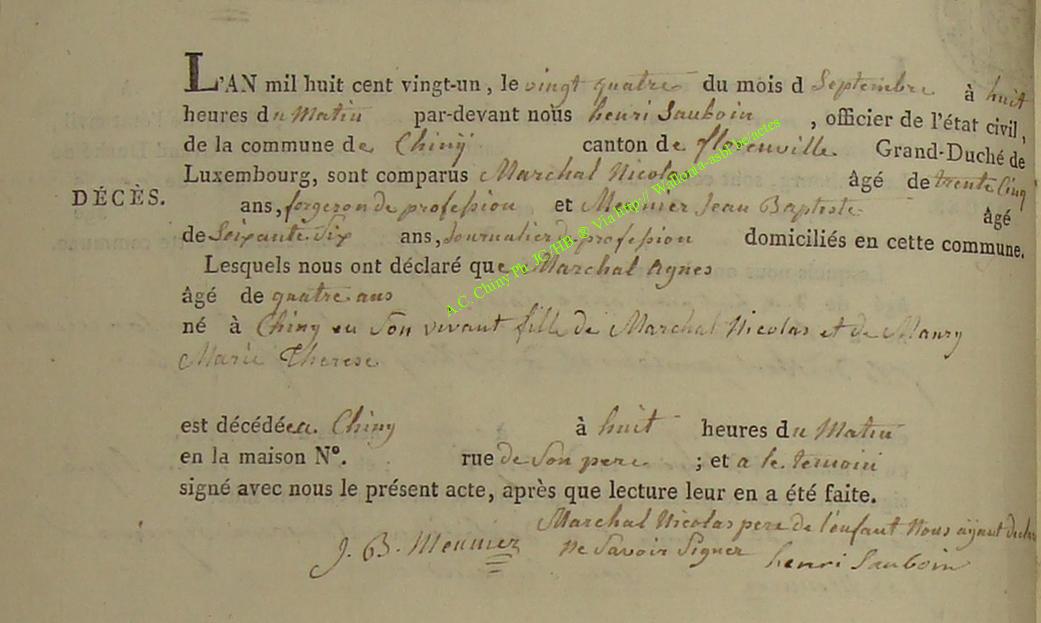 L'AN mil huit cent vingt-un, le vingt quatre du mois d Septembre à huit
heures du Matin par-devant nous henri Sauboin, officier de l'état civil,
de la commune de Chinÿ canton de florenville Grand-Duché de
Luxembourg, sont comparus Marchal Nicolas âgé de trente Cinq
DÉCÈS.
ans, forgeron de profession et Meunier Jean Baptiste âgé
de Soixante Six ans, Journalier de profession domiciliés en cette commune.
Lesquels nous ont déclaré que Marchal Agnes
âgé de quatre ans
né à Chiny en Son vivant fille de Marchal Nicolas et de Manry
Marie Therese
est décédée a Chiny à huit heures du Matin
en la maison N°. rue de Son pere ; et a le temoin
signé avec nous le présent acte, après que lecture leur en a été faite.
Marchal Nicolas pere de l'enfant Nous aÿant
J. B. Meunier Ne Savoir Signer henri Sauboin
A.C. Chiny Ph. JC/HB @ Via http:// Wallonia-asbl be/actes